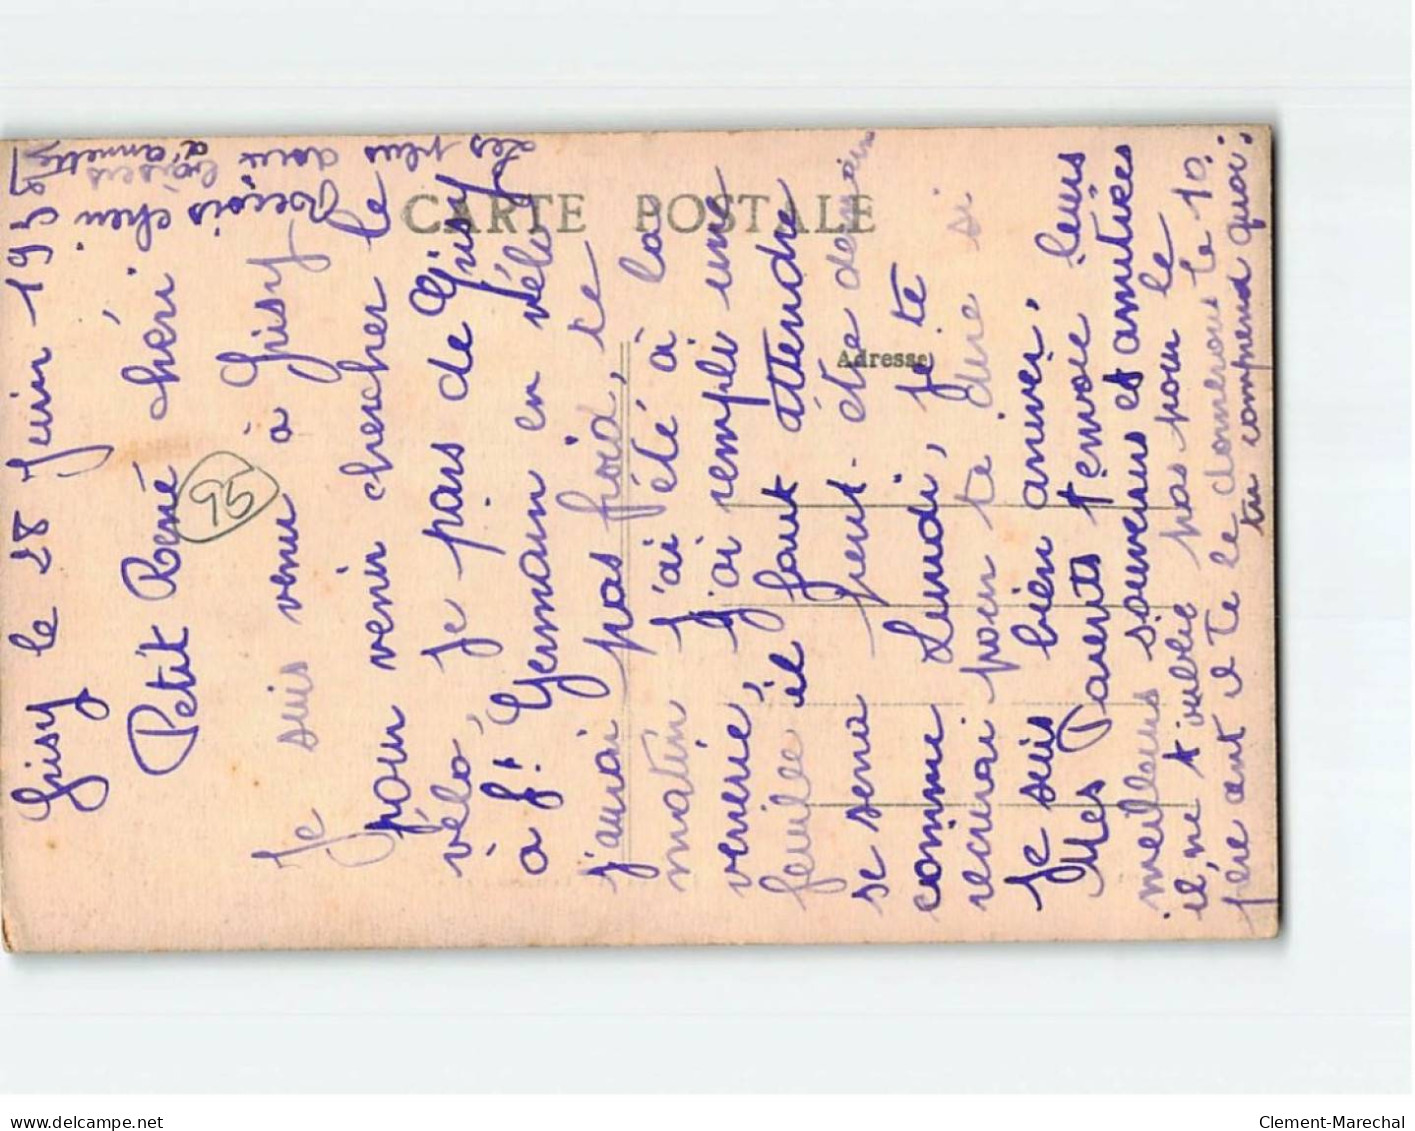 Grisy le 28 Juin 194
Petit René chéri
Je suis venu à Grisy
pour venir chercher le
vélo, Je pars de Grisy
à G! Germain en vélo
j'aurai pas froid, ce
matin j'ai été à la
verrerie, j'ai rempli une
feuille il faut attendre
se sera peut. être demain
comme Lundi, je te
recrirai pour te dire si
Je suis bien arriver.
Mes Parents t'envoie leurs
meilleurs souvenirs et amitiées
il, ne t'oublie pas pour le
père ont il te le donnerons le 10.
tu comprend quoi:
Reçois cheri
Les plus doux
baisers
d'annette
95
CARTE POSTALE
Adresse
Clement-Marechal